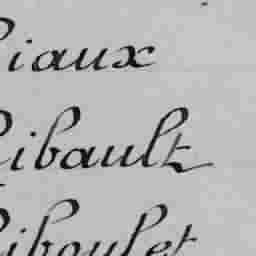 iaux
ibault
iboulet